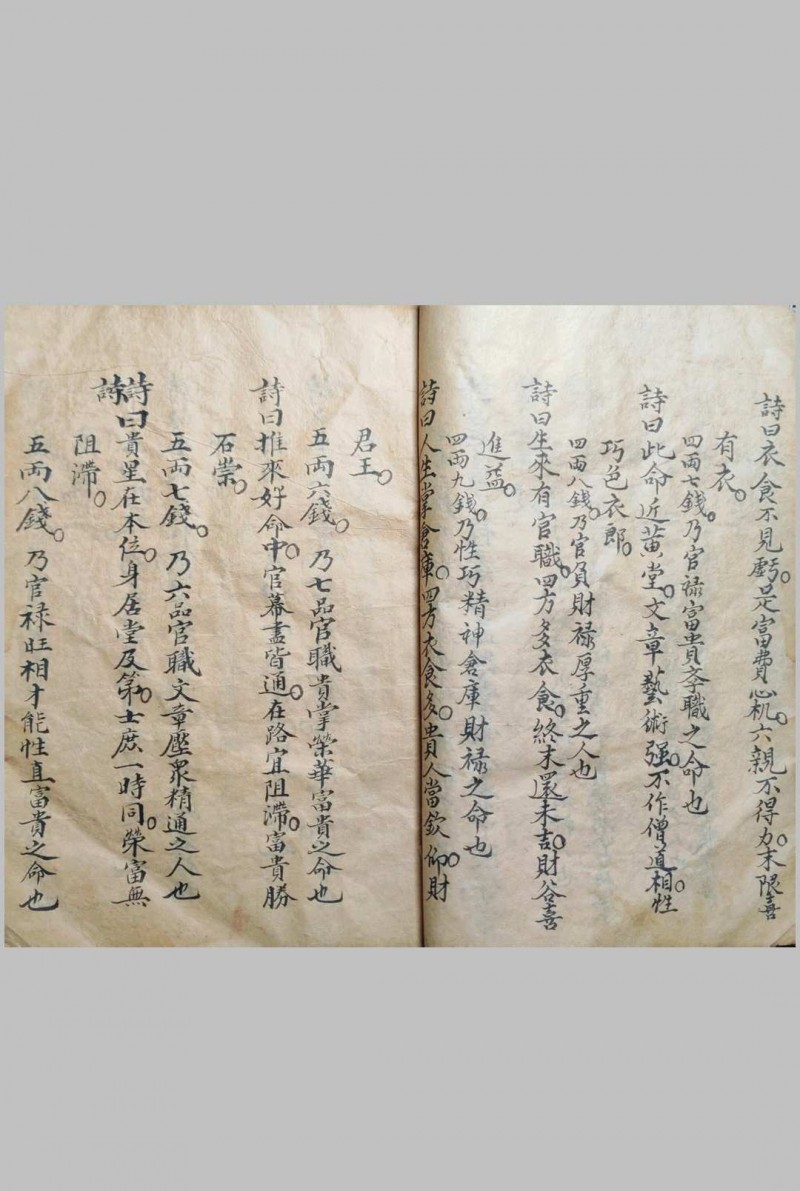 詩曰衣食不見虧。是富費心机。六親不得力。末限喜
有衣。
四両七錢。乃官禄富貴李職之命也
詩曰此命近黄堂。文章藝術强。不作僧道相。性
巧色衣郎。
四両八錢。乃官負財禄厚重之人也
詩曰生來有官職。四方多衣食。終末還未吉。財谷喜
進益。
四両九錢。乃性巧精神倉庫財禄之命也
詩曰人生掌倉庫。四方衣食多。貴人當欽仰。財
君王。
五両六錢。乃七品官職貴掌榮華富貴之命也
詩曰推來好命中。官幕盡皆通。在路宜阻滯。富貴勝
石崇。
五両七錢。乃六品官職文章壓衆精通之人也
詩曰貴星在本位。身居堂及第。士庶一時同。榮富無
詩
阻滯。
五両八錢。乃官禄旺相才能性直富貴之命也